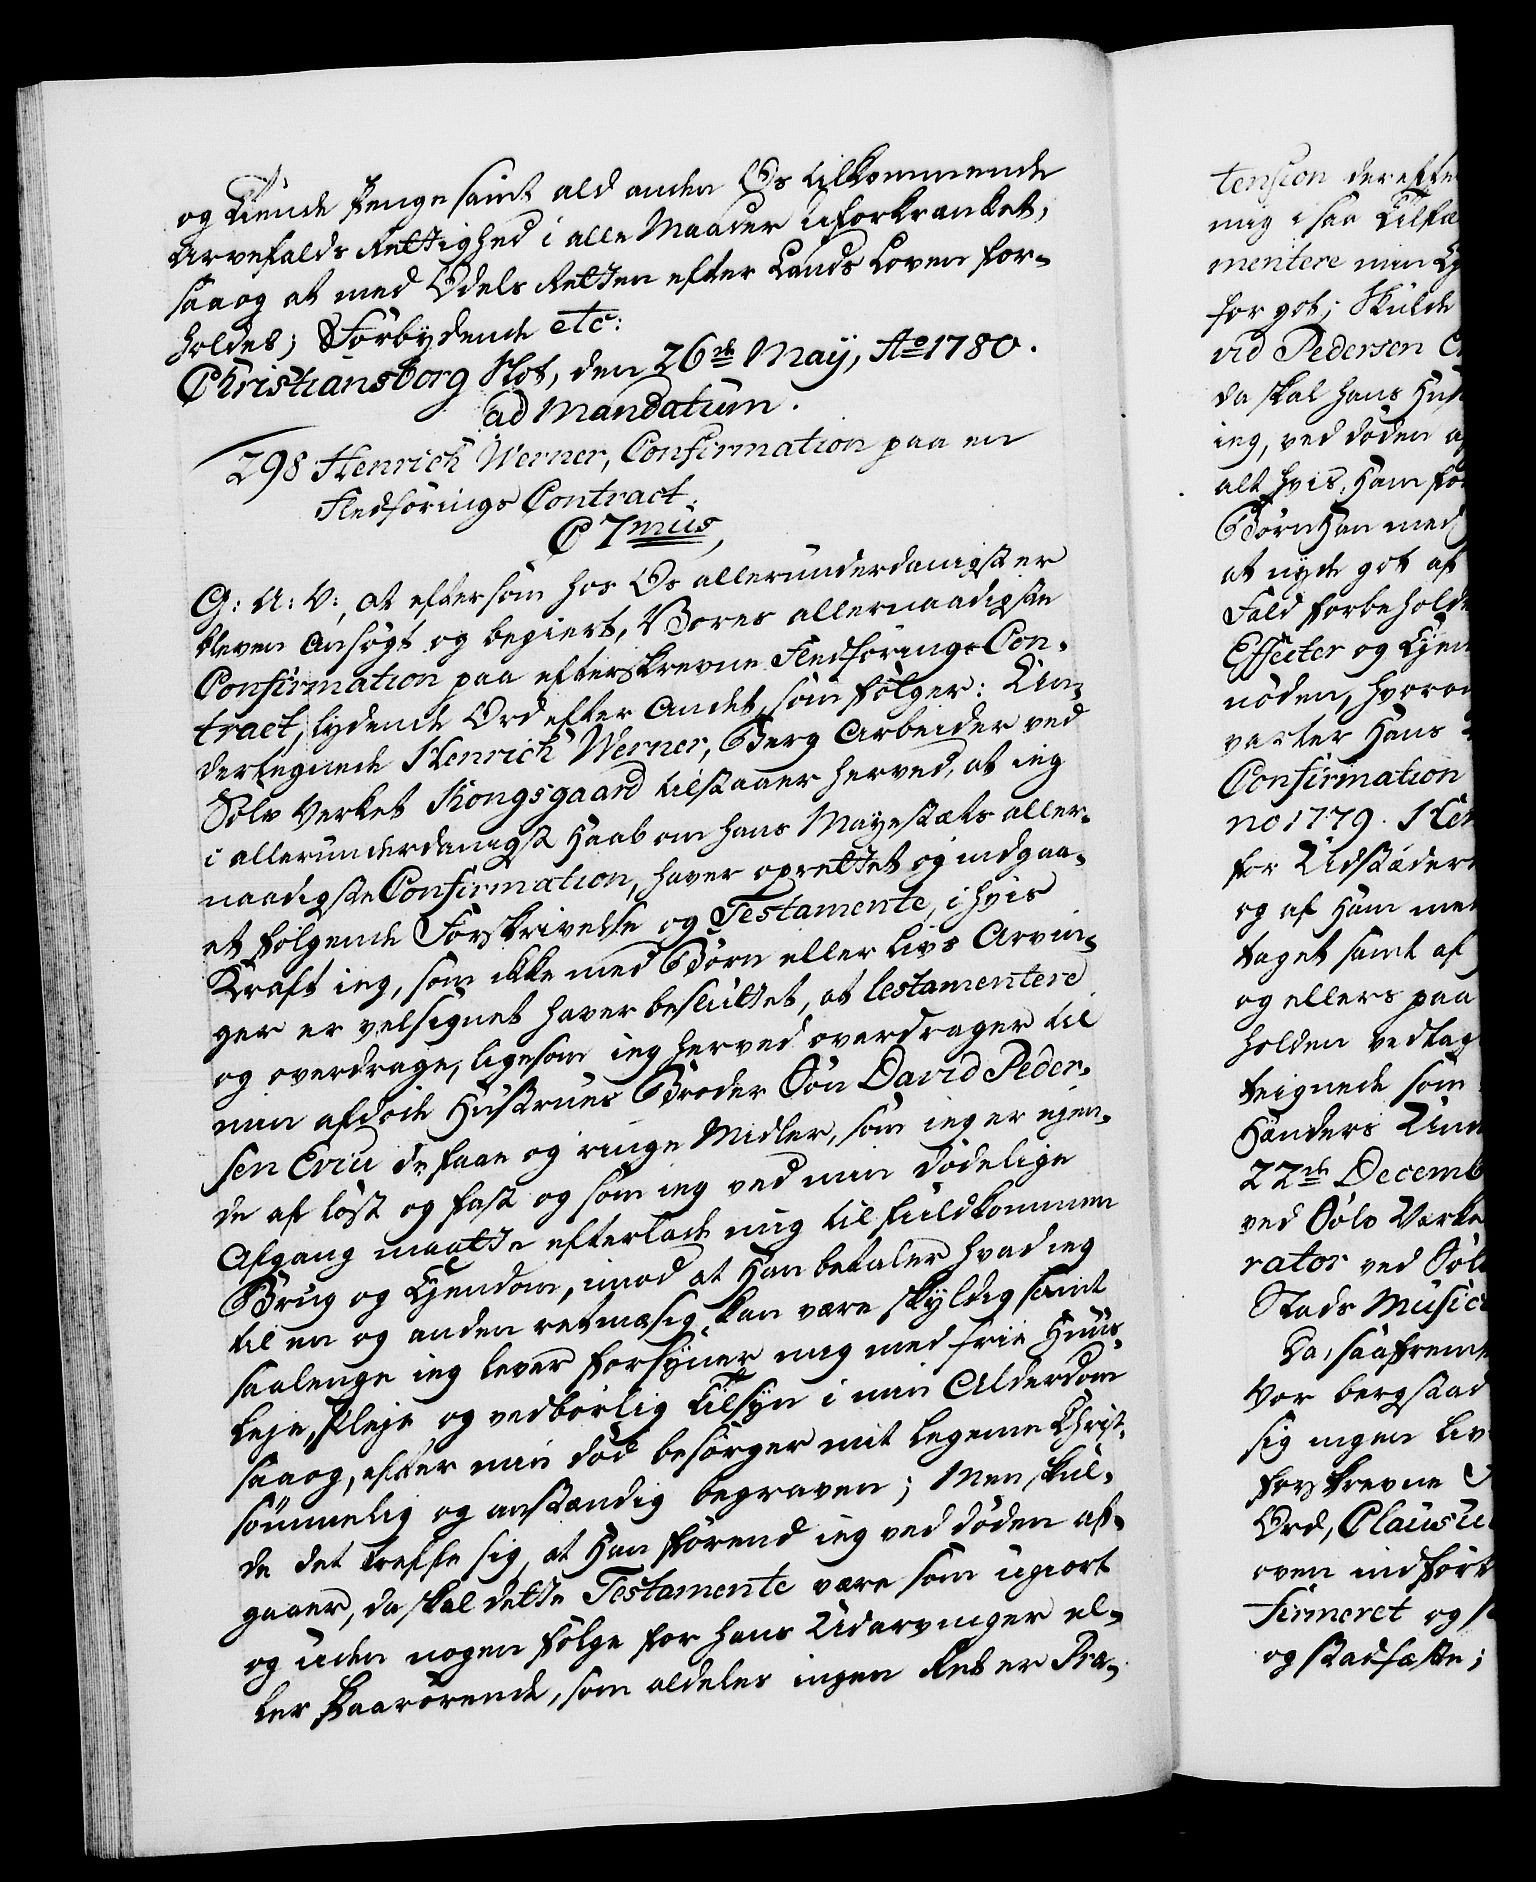 og Tiende Penge samt ald anden Os tilkommende
Arvefalds Rettighed i alle Maader uforkrænket,
saaog at med Odels Retten efter Lands Loven for-
holdes; Forbydende etc:
Christiansborg Slot, den 26de Maÿ, Ao 1780.
ad Mandatum.
298 Henrich Werner, Confirmation paa en
Fledførings Contract.
C 7mus,
G: A: V:, at eftersom hos Os allerunderdanigst er
bleven ansøgt og begiert, Vores allernaadigste
Confirmation paa efterskrevne Fledførings Con-
tract, lydende Ord efter andet, som følger: Un-
dertegnede Henrich Werner, Berg Arbeider ved
Sølv Verket Kongsgaard tilstaaer herved, at ieg
i allerunderdanigst Haab om Hans Mayestæts aller-
naadigste Confirmation, haver oprettet og indgaa-
et følgende Forskrivelse og Testamente, i hvis
Kraft ieg, som ikke med Børn eller Livs Arvin-
ger er velsignet haver besluttet, at testamentere
og overdrage, ligesom ieg herved overdrager til
min afdøde Hustrues Broder Søn David Peder-
sen de faae og ringe Midler, som ieg er eyen-
de af løst og fast og som ieg ved min dødelige
Afgang maatte efterlade mig til fuldkommen
Brug og Eyendom, imod at Han betaler hvad ieg
til en og anden retmæsig kan være skyldig samt
saalenge ieg lever forsyner mig med frie Huus-
leje, Pleje og vedbørlig Tilsyn i min Alderdom
saaog, efter min død besørger mit Legeme Christ-
sømmelig og anstændig begraven; Men skul-
de det treffe sig, at Han førend ieg ved døden af-
gaaer, da skal dette Testamente være som ugiort
og uden nogen følge for hans Udarvinger el-
ler Paarørende, som aldeles ingen Ret er Præ-
tension derefter
mig i saa Tilfæ
mentere min
for got; Skulde
vid Pedersen
da skal hans Hu
ieg, ved døden
alt hvis Ham
Børn Han med
at nyde got af
Fald forbeholde
Effecter og Eyen
nøden, hvoro
varter Hans
Confirmation
no 1779. Hen
for Udstæder
og af Ham me
taget samt af
og ellers paa
holden vedtag
teignede som
Hænders Und
22de Decemb
ved Sølv Værke
rator ved Søl
Stads Music
Da, saafremt
Vor Bergstad
sig ingen Liv
forskrevne
Ord, Clausul
oven indført
firmeret og
og stadfæste;